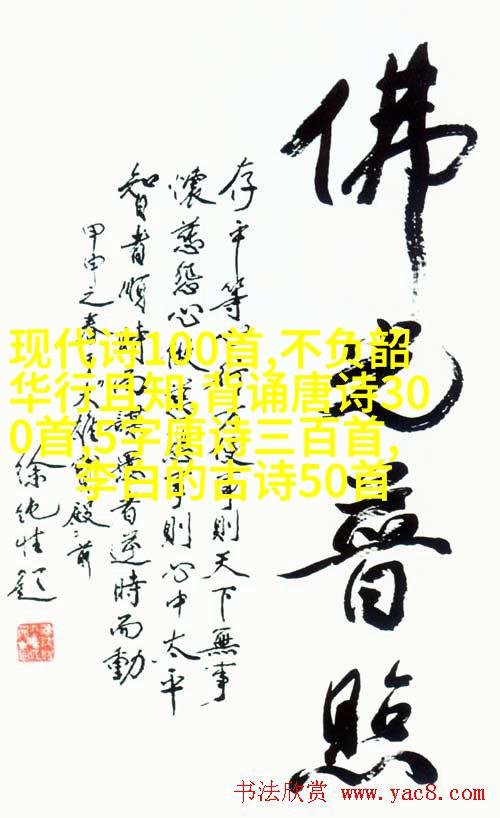 佛光普照
存平等心行方便事則天下無事
懷慈悲心做慈悲事則心中太平
智者順時而謀愚者逆時而動
甲申之春於大雄寶殿前
徐純性題
现代诗100首,不负韶
华行且知,背诵唐诗30
0首,5字唐诗三百首,
李白的古诗50首
书法欣赏 www.yac8.com